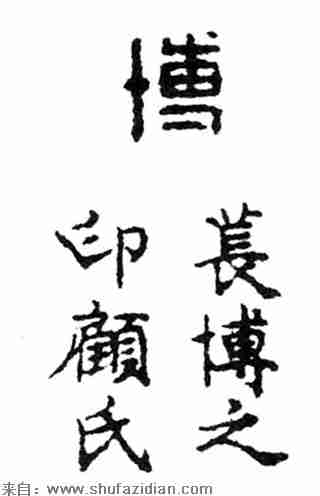 博
萇博之
印顧氏
来自：www.shufazidian.com